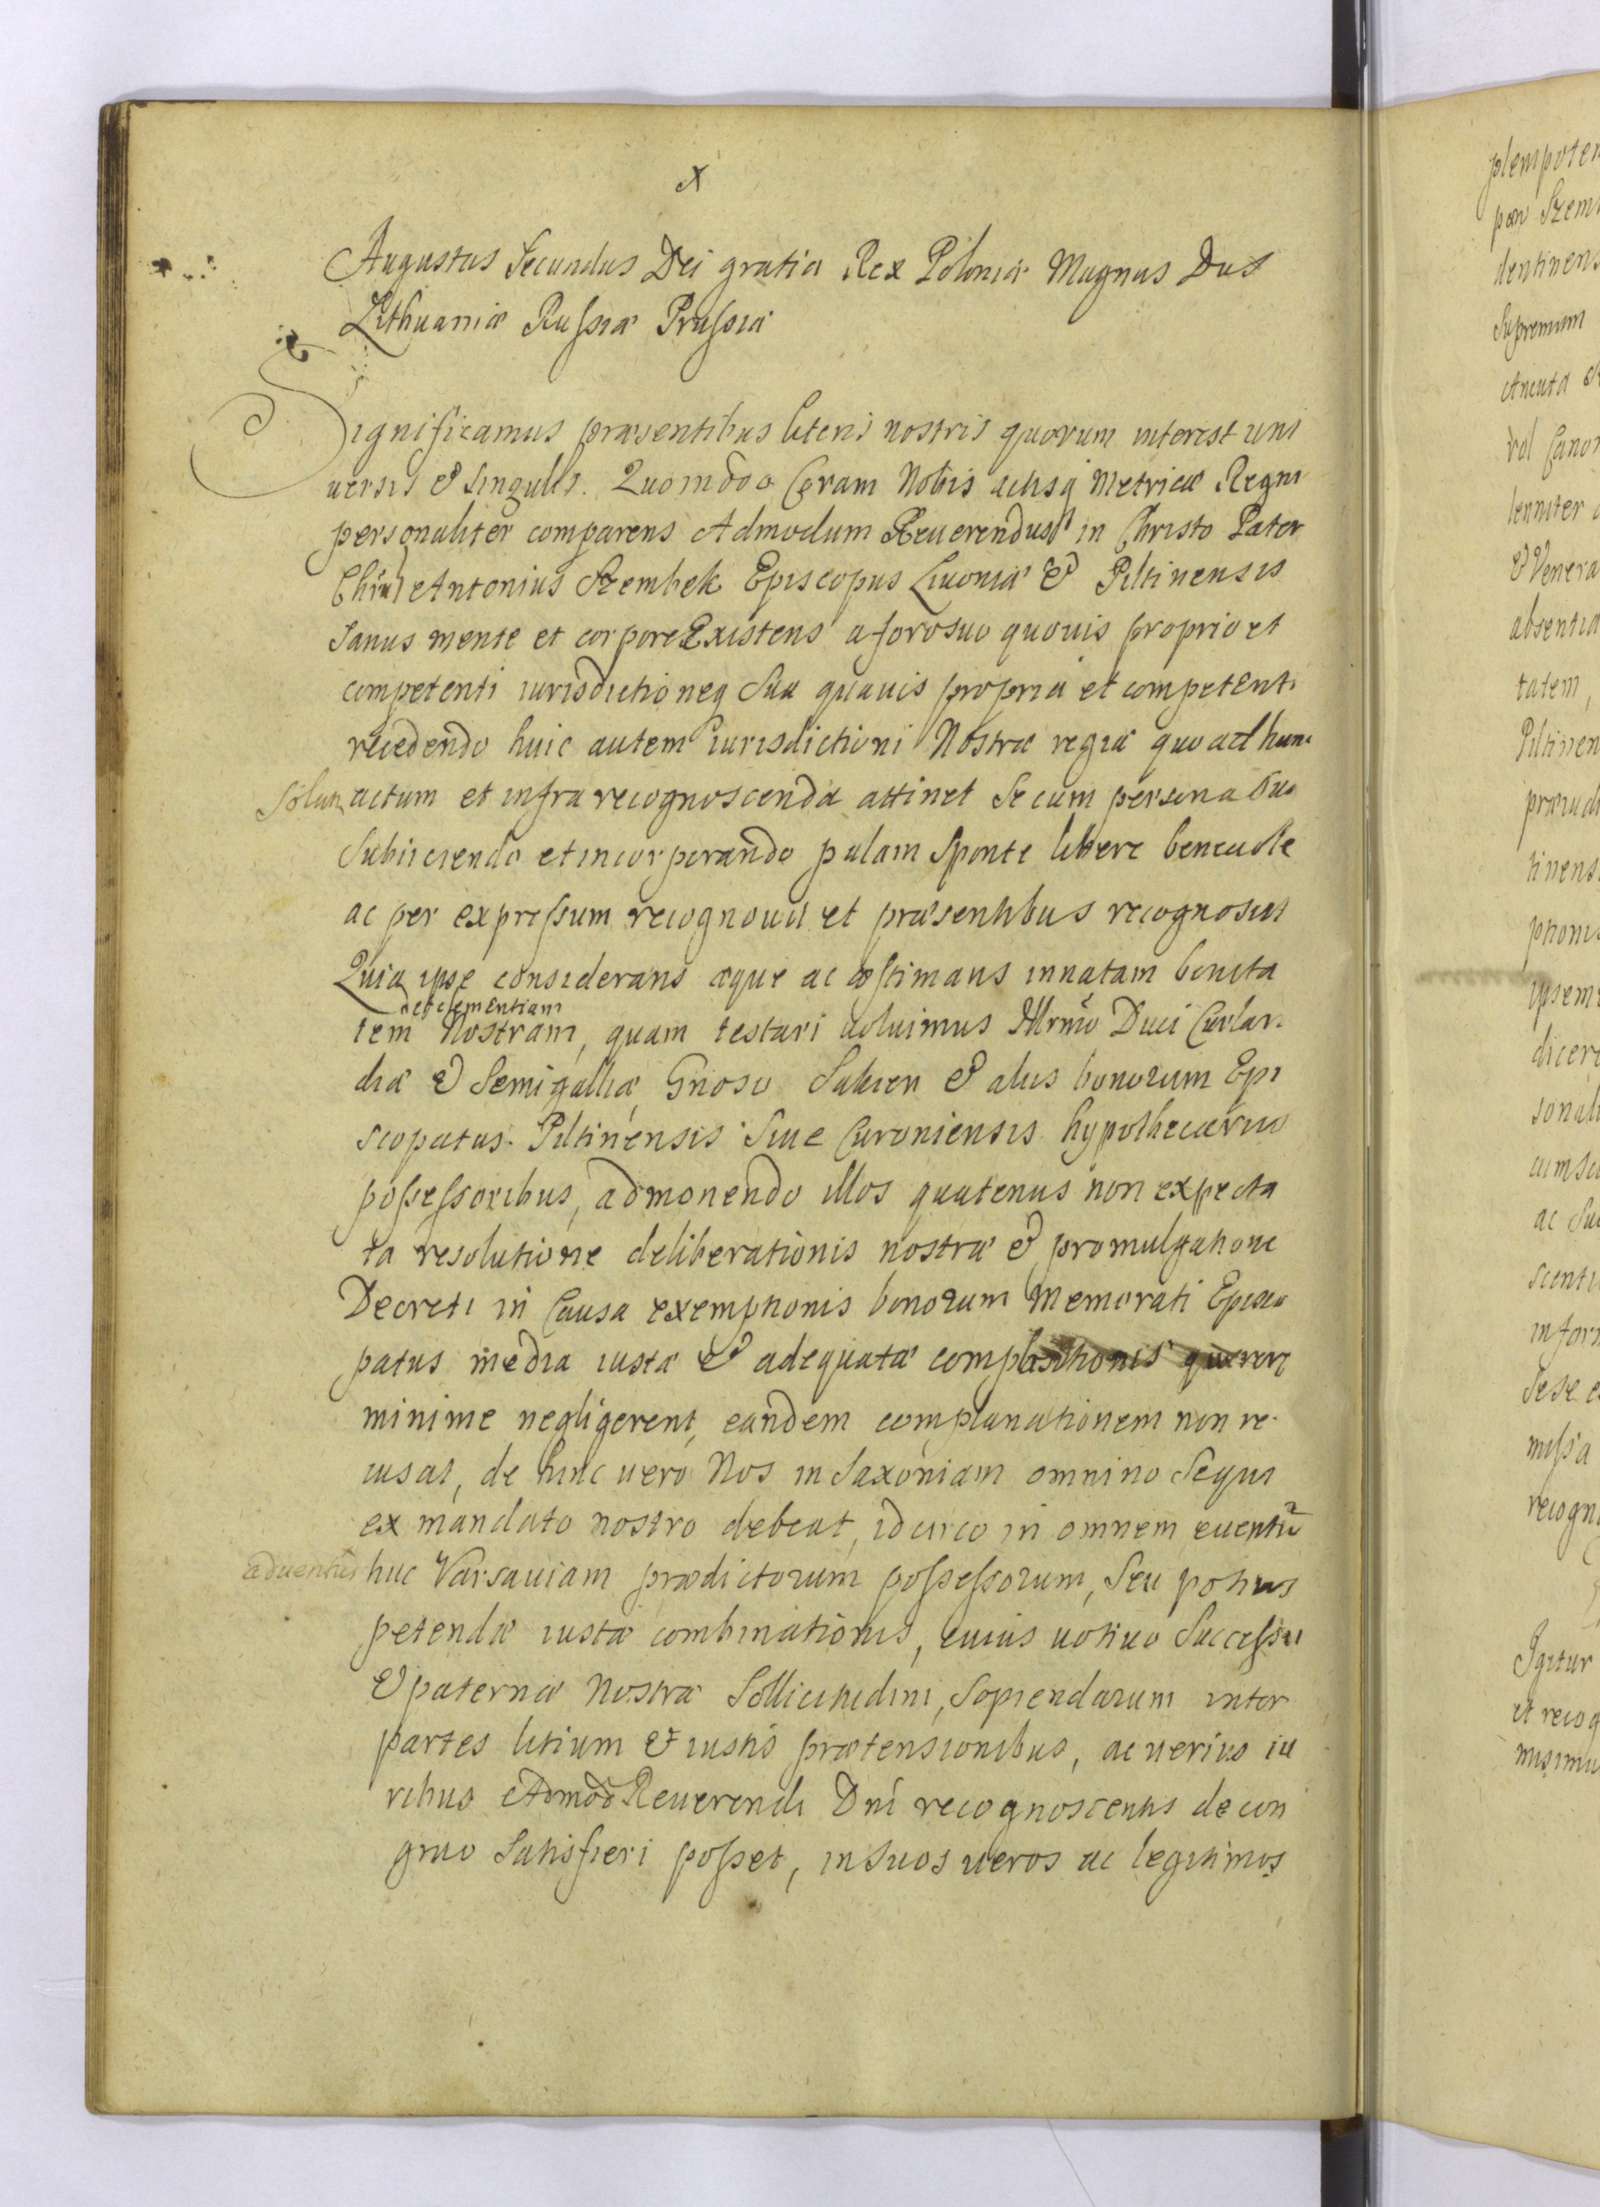 x
Augustus Secundus Dei gratia Rex Poloniæ Magnus Dux
Lithuaniæ Russiæ Prussiæ
Significamus præsentibus literis nostris quorum interest uni
uersis & Singulis. Quomodo Coram Nobis actisq Metricæ Regni
personaliter comparens Admodum Reuerendus in Christo Pater
Antonius Szembek Episcopus Liuoniæ & Piltinensis
Sanus mente et corpore Existens a foro suo quouis proprio et
competenti iurisdictioneq Sua quauis propria et competenti
recedendo huic autem iurisdictioni Nostræ regiæ quo ad hunc
Solum actum et infra recognoscenda attinet Se cum persona Sua
Subiiciendo et incorporando palam Sponte libere beneuole
ac per expressum recognouit et præsentibus recognoscit
Quia ipse considerans æque ac æstimans innatam bonita
et clementiam
tem Nostram, quam testari uoluimus Illrmo Duci Curlan
diæ & Semigalliæ, Gnoso Saken & aliis bonorum Epi
scopatus Piltinensis Siue Curoniensis hypothecariis
possessoribus, admonendo illos quatenus non expecta
ta resolutione deliberationis nostræ & promulgatione
Decreti in Causa exemptionis bonorum Memorati Episco
patus media iustæ & adequatæ quærere
minime negligerent, eandem complanationem non re
cusat, de hinc uero Nos in Saxoniam omnino Sequi
ex mandato nostro debeat, idcirco in omnem euentū
aduentus huc Varsauiam prædictorum possessorum, Seu potius
petendæ iustæ combinationis, cuius uotiuo Successu
& paternæ Nostræ Sollicitudini, Sopiendarum inter
partes litium & iustis prætensionibus, ac uerius iu
ribus Admod Reuerendi Dni recognoscentis de con
gruo Satisfieri posset, in Suos ueros ac legitimos
plempoten
pan Szem
dentinens
Supremum
Ancuta
Canon
& Venera
absentia
tatem,
Piltinen
præiudi
tinens
ptionis
ipsem
dicere
sonali
cum su
ac Su
in for
Se se e
missa
recogn
Igitur
et recog
misimu